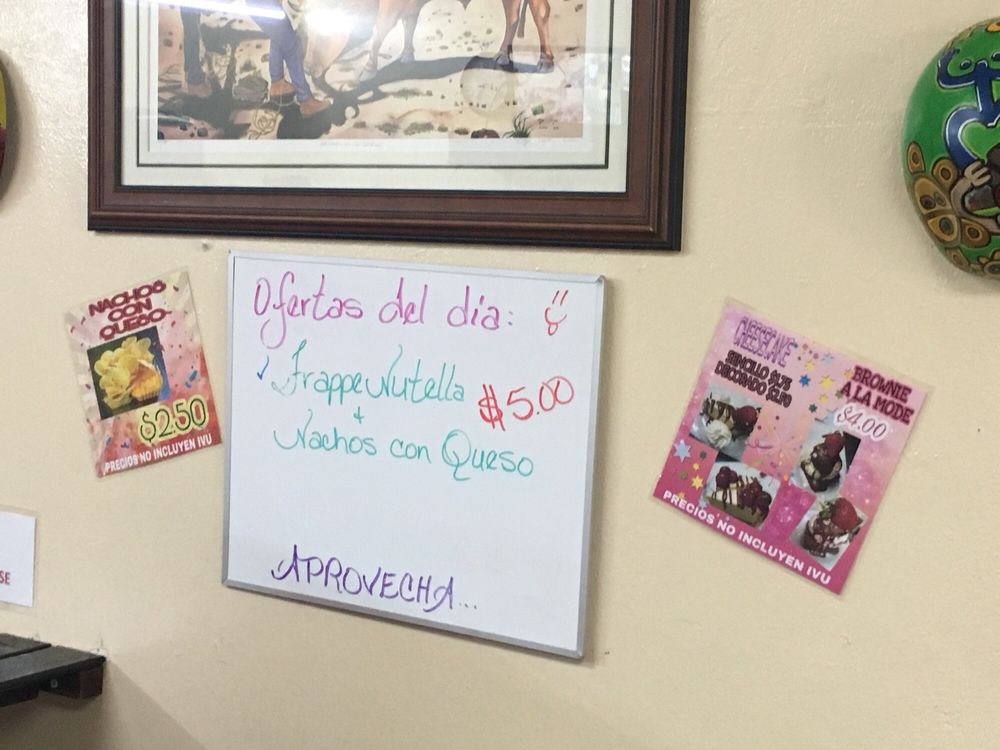 Ofertas del día:
✓ Frappe Nutella
+
Nachos con Queso
$5.00
APROVECHA...
NACHOS
CON
QUESO
$2.50
PRECIOS NO INCLUYEN IVU
CHEESECAKE
SENCILLO $1.75
DECORADO
BROWNIE
A LA MODE
$4.00
PRECIOS NO INCLUYEN IVU
SE